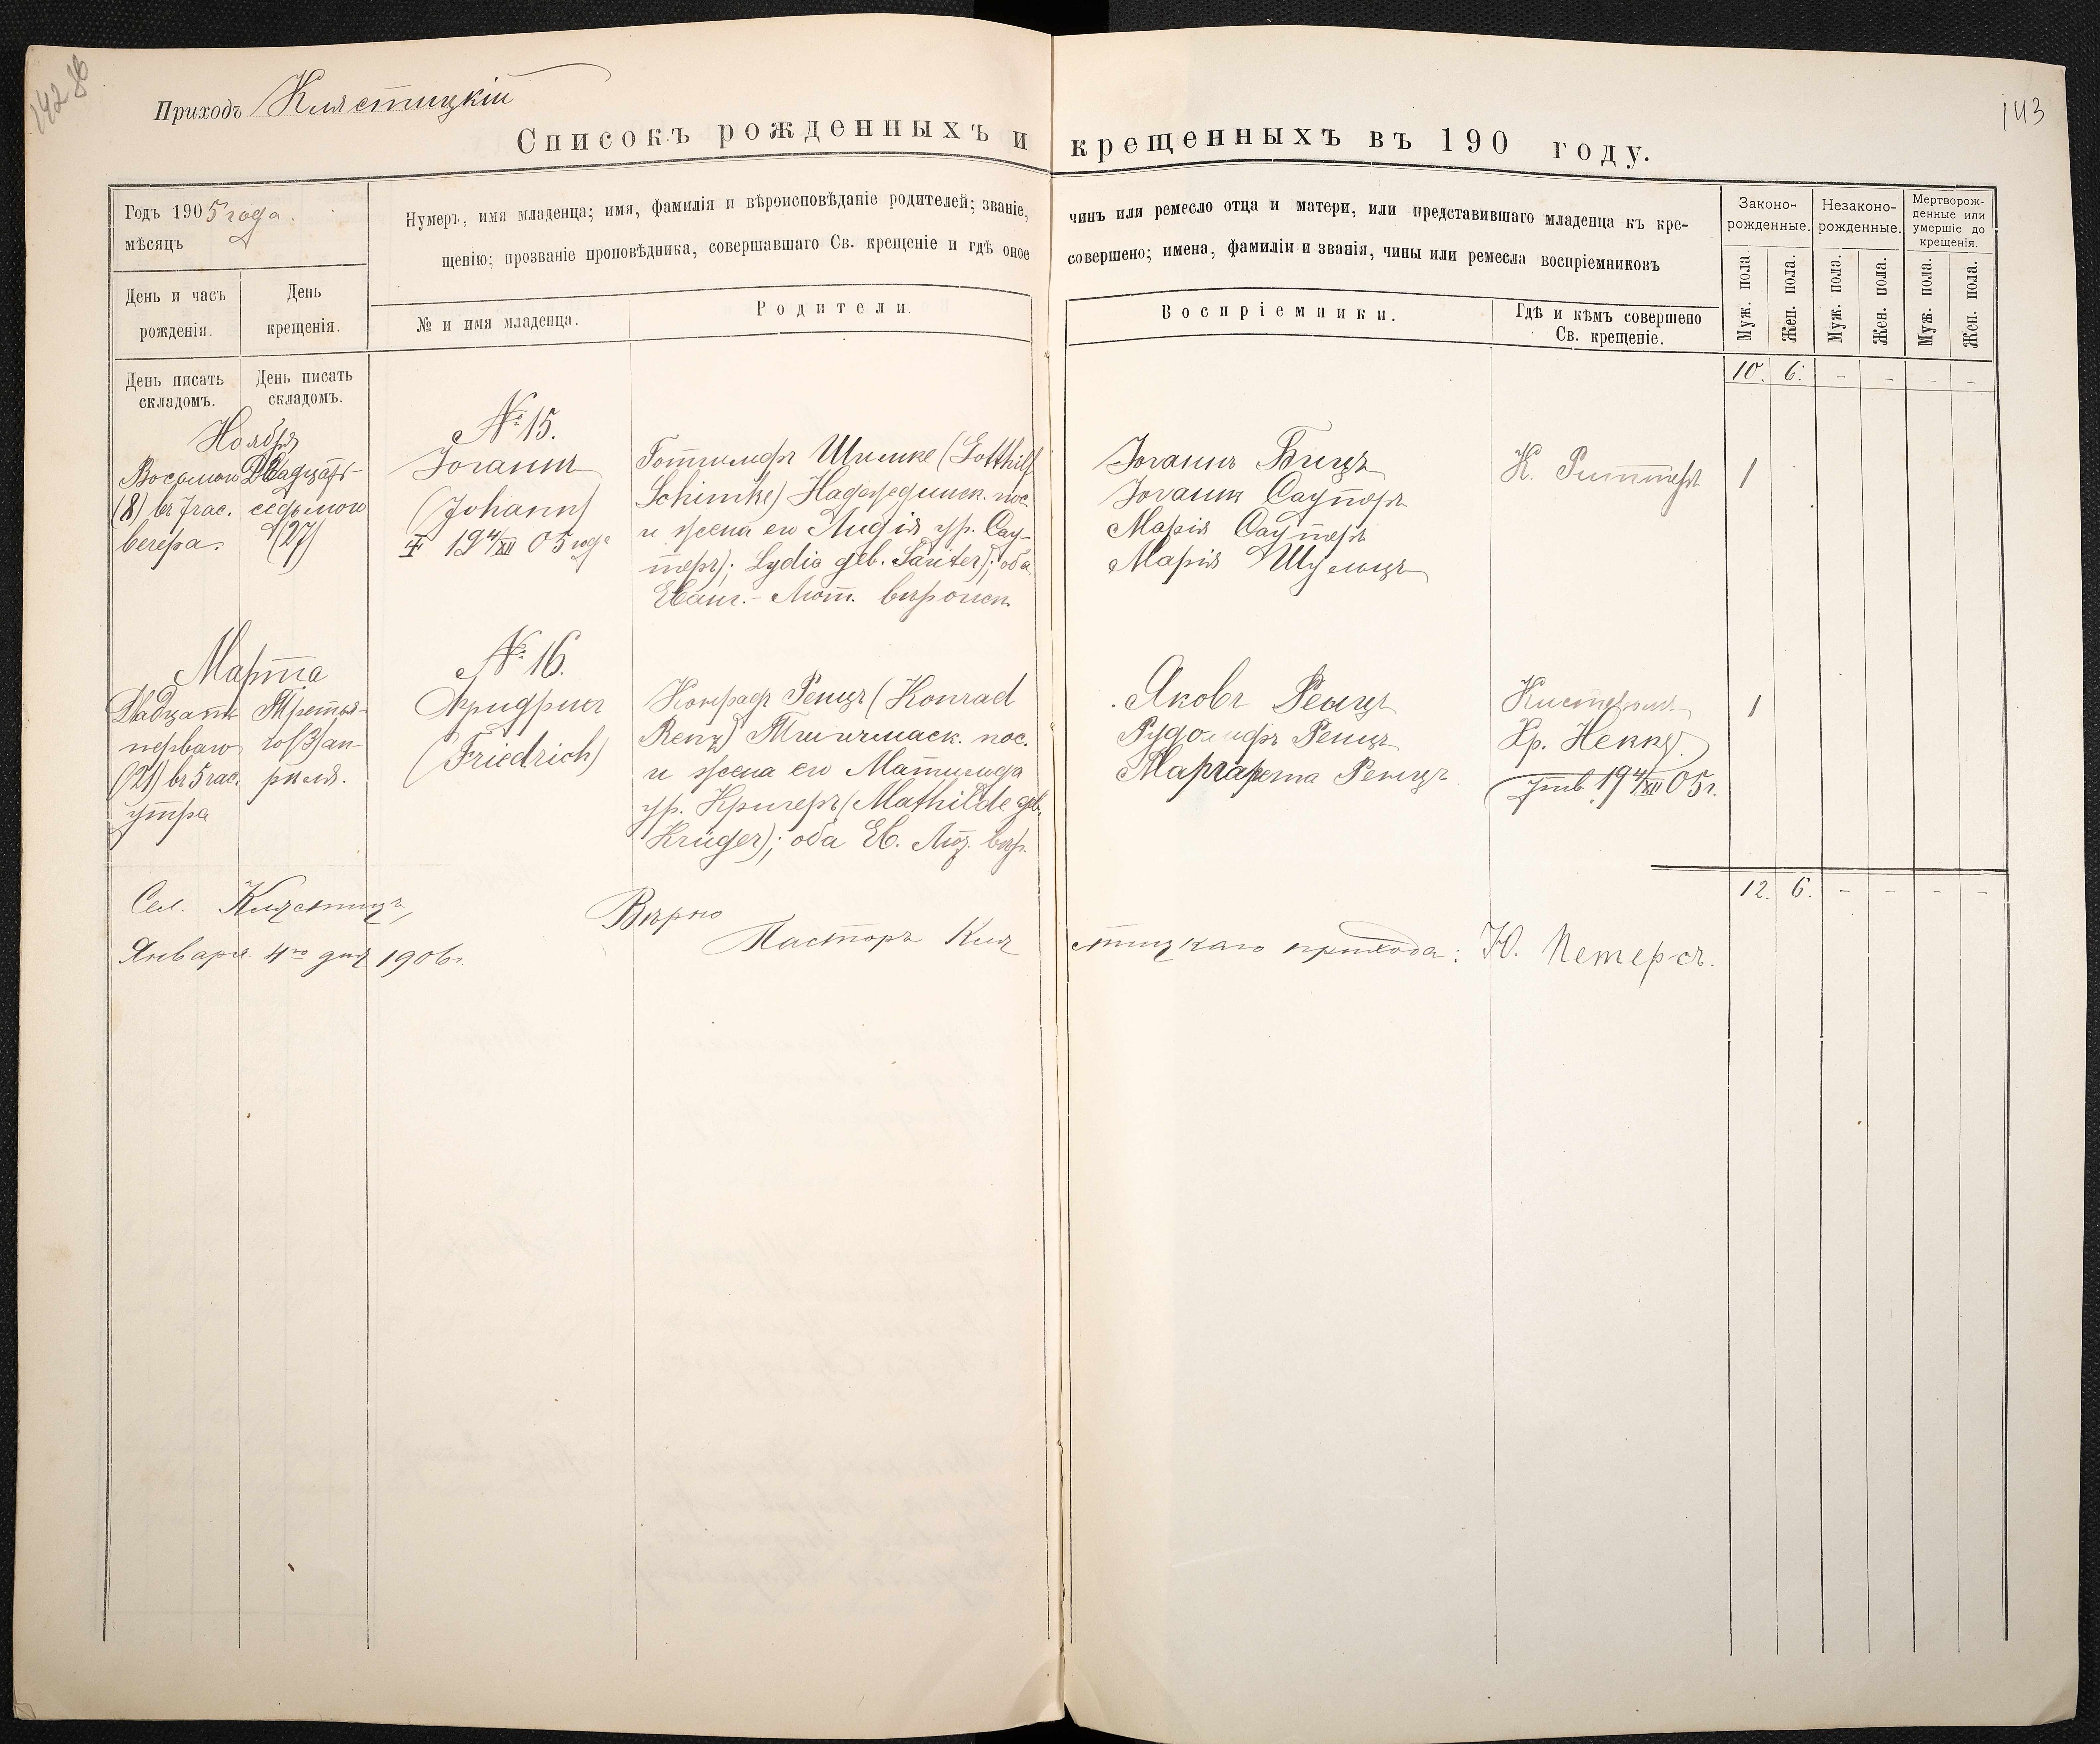 142 об
143
Приходъ Клястицкій
Списокъ рожденныхъ и крещенныхъ въ 190 году.
Годъ 1905 года.
мѣсяцъ
День и часъ
рожденія.
День
крещенія.
Нумеръ, имя младенца; имя, фамилія и вѣроисповѣданіе родителей; званіе, чинъ или ремесло отца и матери, или представившаго младенца къ кре-
щенію; прозваніе проповѣдника, совершавшаго Св. крещеніе и гдѣ оное совершено; имена, фамиліи и званія, чины или ремесла воспріемниковъ
№ и имя младенца.
Родители.
Воспріемники.
Гдѣ и кѣмъ совершено
Св. крещеніе.
Законо-
рожденные.
Незаконо-
рожденные.
Мертворож-
денные или
умершіе до
крещенія.
Муж. пола.
Жен. пола.
Муж. пола.
Жен. пола.
Муж. пола.
Жен. пола.
День писать
складомъ.
День писать
складомъ.
10. 6. - - - -
Ноября
Восьмого
(8) въ 7 час.
вечера.
Двадцать-
седьмого
(27)
№ 15.
Іоганнъ
(Johann)
19 4/XII 05 года
Готтильфъ Шимке (Gotthilf
Schimke) Надеждинск. пос.
и жена его Лидія ур. Сау-
теръ); Lydia geb. Sauter); оба
Еванг.-Лют. вѣроисп.
Іоганнъ Бицъ
Іоганнъ Саутеръ
Марія Саутеръ
Марія Шульцъ
К. Риттеръ
1
Марта
Двадцать
перваго
(21) въ 5 час.
утра
Третья-
го (3) ап-
рѣля.
№ 16.
Фридрихъ
(Friedrich)
Конрадъ Ренцъ (Konrad
Renz) Тишчмаск. пос.
и жена его Матильда
ур. Кригеръ (Mathilde geb.
Krüger); оба Ев. Лют. вѣр.
Яковъ Ренцъ
Рудольфъ Ренцъ
Маргарета Ренцъ
Кистеромъ
Хр. Некку.
утв. 19 4/XII 05 г.
1
12. 6. - - - -
Сел. Клястицъ,
Января 4го дня 1906 г.
Вѣрно
Пасторъ Клястицкаго прихода: Ю. Петерсъ.